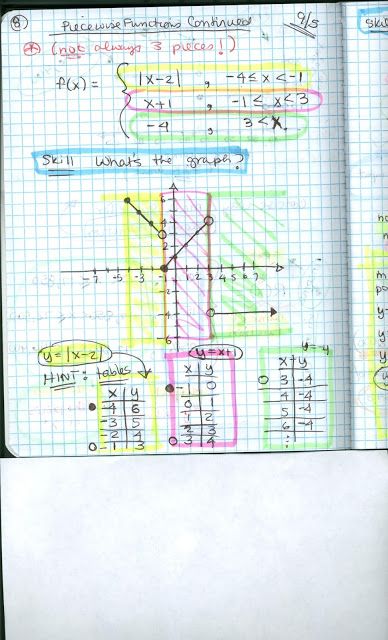 8 Piecewise Functions Continued 9/5
(not always 3 pieces!)
f(x) = { |x-2| , -4≤x<-1
x+1 , -1≤x<3
-4 , 3<x.
Skill What's the graph?
6
4
2
-7 -5 -3 -1 1 2 3 4 5 6 7
-2
-4
-6
y=|x-2| y=x+1 y=-4
HINT: tables
x y
-4 6
-3 5
-2 4
-1 3
x y
-1 0
0 1
1 2
2 3
3 4
x y
3 -4
4 -4
5 -4
6 -4
⋮
Skil